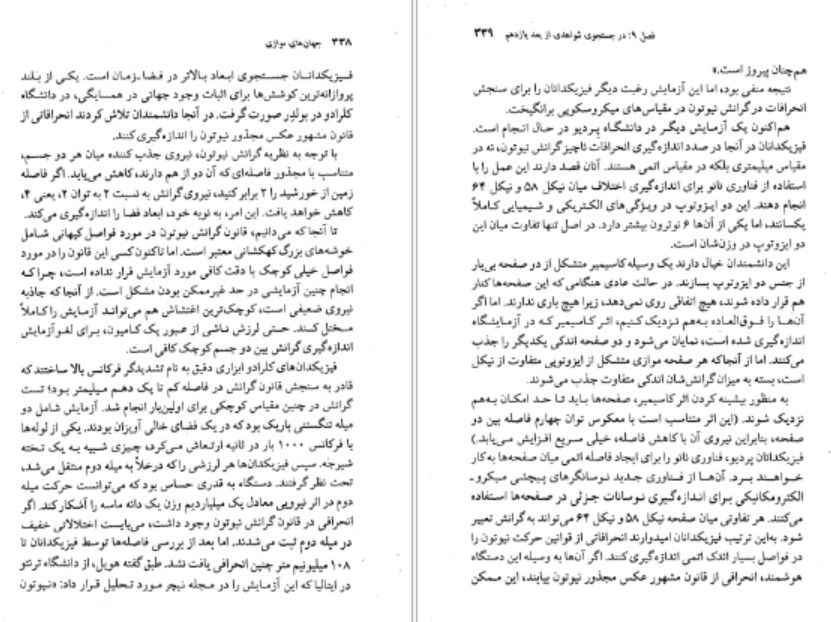 ۳۳۸ جهان‌های موازی
فیزیکدانان جستجوی ابعاد بالاتر در فضا-زمان است. یکی از بلند
پروازانه‌ترین کوشش‌ها برای اثبات وجود جهانی در همسایگی، در دانشگاه
کلرادو در بولدر صورت گرفت. در آنجا دانشمندان تلاش کردند انحرافاتی از
قانون مشهور عکس مجذور نیوتون را اندازه‌گیری کنند.
با توجه به نظریه گرانش نیوتون، نیروی جذب کننده میان هر دو جسم،
متناسب با مجذور فاصله‌ای که آن دو از هم دارند، کاهش می‌یابد. اگر فاصله
زمین از خورشید را ۲ برابر کنید، نیروی گرانش به نسبت ۲ به توان ۲، یعنی ۴،
کاهش خواهد یافت. این امر، به نوبه خود، ابعاد فضا را اندازه‌گیری می‌کند.
تا آنجا که می‌دانیم، قانون گرانش نیوتون در مورد فواصل کیهانی شامل
خوشه‌های بزرگ کهکشانی معتبر است. اما تاکنون کسی این قانون را در مورد
فواصل خیلی کوچک با دقت کافی مورد آزمایش قرار نداده است، چرا که
انجام چنین آزمایشی در حد غیرممکن بودن مشکل است. از آنجا که جاذبه
نیروی ضعیفی است، کوچک‌ترین اغتشاش هم می‌تواند آزمایش را کاملاً
مختل کند. حتی لرزش ناشی از عبور یک کامیون، برای لغو آزمایش
اندازه‌گیری گرانش بین دو جسم کوچک کافی است.
فیزیکدان‌های کلرادو ابزاری دقیق به نام تشدیدگر فرکانس بالا ساختند که
قادر به سنجش قانون گرانش در فاصله کم تا یک دهم میلیمتر بود؛ تست
گرانش در چنین مقیاس کوچکی برای اولین‌بار انجام شد. آزمایش شامل دو
میله تنگستنی باریک بود که در یک فضای خالی آویزان بودند. یکی از لوله‌ها
با فرکانس ۱۰۰۰ بار در ثانیه ارتعاش می‌کرد، چیزی شبیه به یک تخته
شیرجه. سپس فیزیکدان‌ها هر لرزشی را که در خلأ به میله دوم منتقل می‌شد،
تحت نظر گرفتند. دستگاه به قدری حساس بود که می‌توانست حرکت میله
دوم در اثر نیرویی معادل یک میلیاردیم وزن یک دانه ماسه را آشکار کند. اگر
انحرافی در قانون گرانش نیوتون وجود داشت، می‌بایست اختلالاتی خفیف
در میله دوم ثبت می‌شدند. اما بعد از بررسی فاصله‌ها توسط فیزیکدانان تا
۱۰۸ میلیونیم متر چنین انحرافی یافت نشد. طبق گفته هویل، از دانشگاه ترنتو
در ایتالیا که این آزمایش را در مجله نیچر مورد تحلیل قرار داد: «نیوتون
فصل ۹: در جستجوی شواهدی از بعد یازدهم ۳۳۹
هم‌چنان پیروز است.»
نتیجه منفی بود، اما این آزمایش رغبت دیگر فیزیکدانان را برای سنجش
انحرافات در گرانش نیوتون در مقیاس‌های میکروسکوپی برانگیخت.
هم‌اکنون یک آزمایش دیگر در دانشگاه پردیو در حال انجام است.
فیزیکدانان در آنجا در صدد اندازه‌گیری انحرافات ناچیز گرانش نیوتون، نه در
مقیاس میلیمتری بلکه در مقیاس اتمی هستند. آنان قصد دارند این عمل را با
استفاده از فناوری نانو برای اندازه‌گیری اختلاف میان نیکل ۵۸ و نیکل ۶۴
انجام دهند. این دو ایزوتوپ در ویژگی‌های الکتریکی و شیمیایی کاملاً
یکسانند، اما یکی از آن‌ها ۶ نوترون بیشتر دارد. در اصل تنها تفاوت میان این
دو ایزوتوپ در وزن‌شان است.
این دانشمندان خیال دارند یک وسیله کاسیمیر متشکل از دو صفحه بی‌بار
از جنس دو ایزوتوپ بسازند. در حالت عادی هنگامی که این صفحه‌ها کنار
هم قرار داده شوند، هیچ اتفاقی روی نمی‌دهد، زیرا هیچ باری ندارند. اما اگر
آن‌ها را فوق‌العاده به‌هم نزدیک کنیم، اثر کاسیمیر که در آزمایشگاه
اندازه‌گیری شده است، نمایان می‌شود و دو صفحه اندکی یکدیگر را جذب
می‌کنند. اما از آنجا که هر صفحه موازی متشکل از ایزوتوپی متفاوت از نیکل
است، بسته به میزان گرانش‌شان اندکی متفاوت جذب می‌شوند.
به منظور بیشینه کردن اثر کاسیمیر، صفحه‌ها باید تا حد امکان به‌هم
نزدیک شوند. (این اثر متناسب است با معکوس توان چهارم فاصله بین دو
صفحه، بنابراین نیروی آن با کاهش فاصله، خیلی سریع افزایش می‌یابد.)
فیزیکدانان پردیو، فناوری نانو را برای ایجاد فاصله اتمی میان صفحه‌ها به کار
خواهند برد. آن‌ها از فناوری جدید نوسانگرهای پیچشی میکرو-
الکترومکانیکی برای اندازه‌گیری نوسانات جزئی در صفحه‌ها استفاده
می‌کنند. هر تفاوتی میان صفحه نیکل ۵۸ و نیکل ۶۴ می‌تواند به گرانش تعبیر
شود. به‌این ترتیب فیزیکدانان امیدوارند انحرافاتی از قوانین حرکت نیوتون را
در فواصل بسیار اندک اتمی اندازه‌گیری کنند. اگر آن‌ها به وسیله این دستگاه
هوشمند، انحرافی از قانون مشهور عکس مجذور نیوتون بیابند، این ممکن